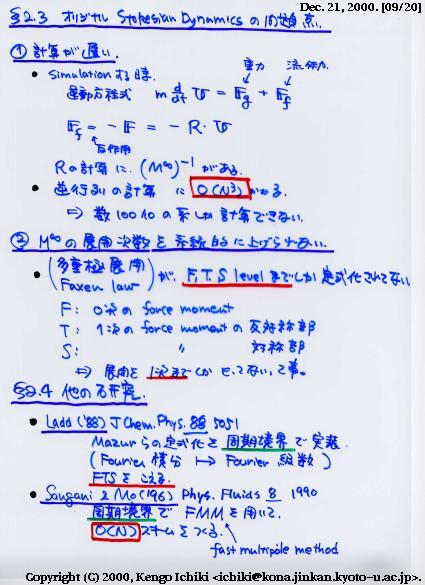 Dec. 21, 2000. [09/20]
§2.3 オリジナル Stokesian Dynamics の問題点.
① 計算が遅い.
• simulation する時.
重力 流体力
運動方程式 m d/dt v = Fg + Ff
Ff = − F = − R · v
反作用
R の計算に (M∞)⁻¹ がある.
• 逆行列の計算 に O(N³) かかる.
⇒ 数100個の系しか計算できない.
② M∞ の展開次数を系統的に上げられない.
• (多重極展開
Faxen law) が F,T,S level までしか定式化されてない
F: 0次の force moment
T: 1次の force moment の 反対称部
S: 〃 対称部
⇒ 展開を 1次まで しか とってない,って事。
§2.4 他の研究.
• Ladd ('88) J. Chem. Phys. 88 5051
Mazur らの定式化を 周期境界 で実装
(Fourier 積分 ↦ Fourier 級数)
FTS をこえる.
• Sangani & Mo ('96) Phys. Fluids 8 1990
周期境界で FMM を用いて.
O(N) スキームをつくる.
fast multipole method
Copyright (C) 2000, Kengo Ichiki <ichiki@kona.jinkan.kyoto-u.ac.jp>.